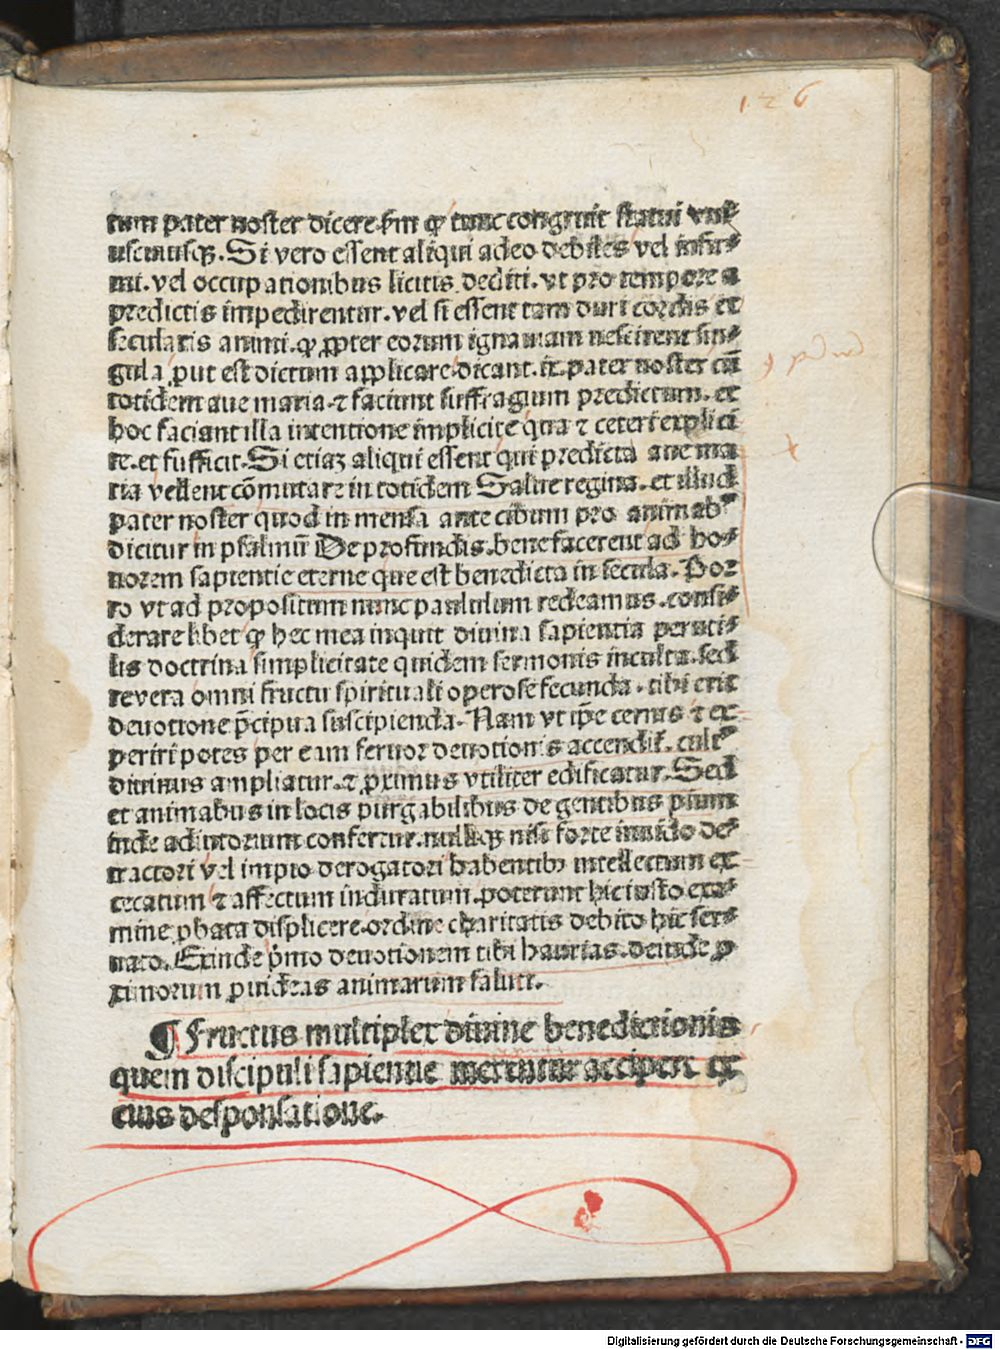 126
tum pater noster dicere. sm̄ ꝙ tunc congruit statui vni⸗
uscuiusqꝫ. Si vero essent aliqui adeo debiles vel infir⸗
mi. vel occupationibus licitis dediti. vt pro tempore a
predictis impedirentur. vel si essent tam duri cordis et
secularis animi. ꝙ ꝓpter eorum ignauiam nescirent sin⸗
gula ꝓut est dictum applicare. dicant. ix. pater noster cū
totidem aue maria. ⁊ faciunt suffragium predictum. et
hoc faciant illa intentione implicite qua ⁊ ceteri explici
te. et sufficit. Si etiaꝫ aliqui essent qui predicta aue ma
ria vellent cōmutare in totidem Salue regina. et illud
pater noster quod in mensa ante cibum pro animabꝰ
dicitur in psalmū De profundis. bene facerent ad ho⸗
norem sapientie eterne que est benedicta in secula. Por
ro vt ad propositum nunc paululum redeamus. consi⸗
derare libet ꝙ hec mea inquit diuina sapientia peruti⸗
lis doctrina simplicitate quidem sermonis inculta. sed
revera omni fructu spirituali operose fecunda. tibi erit
deuotione p̄cipua suscipienda. Nam vt ip̄e cernis ⁊ ex⸗
periri potes per eam feruor deuotionis accendit̄. cultꝰ
diuinus ampliatur. ⁊ ꝓximus vtiliter edificatur. Sed
et animabus in locis purgabilibus degentibus pium
inde adiutorium confertur. nulliqꝫ nisi forte inuido de⸗
tractori vel impio derogatori habentibꝫ intellectum ex⸗
cecatum ⁊ affectum induratum. poterunt hic iusto exa⸗
mine ꝓbata displicere. ordine charitatis debito hic ser⸗
uato. Exinde p̄mo deuotionem tibi haurias. deinde ꝓ
ximorum ꝓuideas animarum saluti.
¶ Fructus multiplex diuine benedictionis
quem discipuli sapientie merentur accipere ex
eius desponsatione.
Digitalisierung gefördert durch die Deutsche Forschungsgemeinschaft - DFG